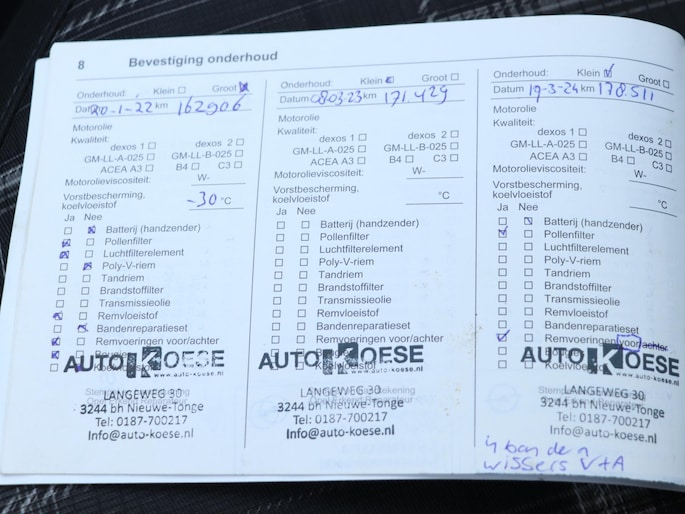 8 Bevestiging onderhoud
Onderhoud: Klein Groot
Datum 20-1-22 km 162906
Motorolie
Kwaliteit:
dexos 1 dexos 2
GM-LL-A-025 GM-LL-B-025
ACEA A3 B4 C3
Motorolieviscositeit: W-
Vorstbescherming,
koelvloeistof -30 °C
Ja Nee
Batterij (handzender)
Pollenfilter
Luchtfilterelement
Poly-V-riem
Tandriem
Brandstoffilter
Transmissieolie
Remvloeistof
Bandenreparatieset
Remvoeringen voor/achter
Bougies
Koelvloeistof
AUTO KOESE
www.auto-koese.nl
LANGEWEG 30
3244 bh Nieuwe-Tonge
Tel: 0187-700217
Info@auto-koese.nl
Onderhoud: Klein Groot
Datum 08-03-23 km 171.429
Motorolie
Kwaliteit:
dexos 1 dexos 2
GM-LL-A-025 GM-LL-B-025
ACEA A3 B4 C3
Motorolieviscositeit: W-
Vorstbescherming,
koelvloeistof °C
Ja Nee
Batterij (handzender)
Pollenfilter
Luchtfilterelement
Poly-V-riem
Tandriem
Brandstoffilter
Transmissieolie
Remvloeistof
Bandenreparatieset
Remvoeringen voor/achter
Koelvloeistof
AUTO KOESE
www.auto-koese.nl
LANGEWEG 30
3244 bh Nieuwe-Tonge
Tel: 0187-700217
Info@auto-koese.nl
Onderhoud: Klein Groot
Datum 19-3-24 km 178.511
Motorolie
Kwaliteit:
dexos 1 dexos 2
GM-LL-A-025 GM-LL-B-025
ACEA A3 B4 C3
Motorolieviscositeit: W-
Vorstbescherming,
koelvloeistof °C
Ja Nee
Batterij (handzender)
Pollenfilter
Luchtfilterelement
Poly-V-riem
Tandriem
Brandstoffilter
Transmissieolie
Remvloeistof
Bandenreparatieset
Remvoeringen voor/achter
Bougies
Koelvloeistof
AUTO KOESE
www.auto-koese.nl
LANGEWEG 30
3244 bh Nieuwe-Tonge
Tel: 0187-700217
Info@auto-koese.nl
banden
wissers V+A